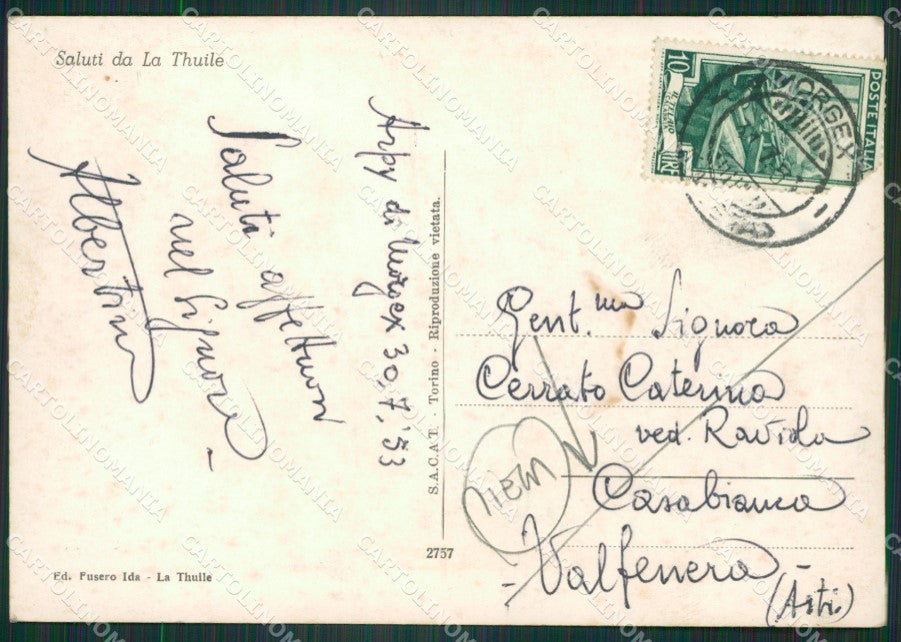 Saluti da La Thuile
Arpy di Morgex 30,7,'53
Saluti affettuosi
nel Signore
Albertin
S.A.C.A.T. - Torino - Riproduzione vietata.
2757
Ed. Fusero Ida - La Thuile
10
LIRE
POSTE ITALIA
MORGEX
Gent.ma Signora
Cerrato Caterina
ved. Raviola
Casabianca
- Valfenera -
(Asti)
CARTOLINOMANIA